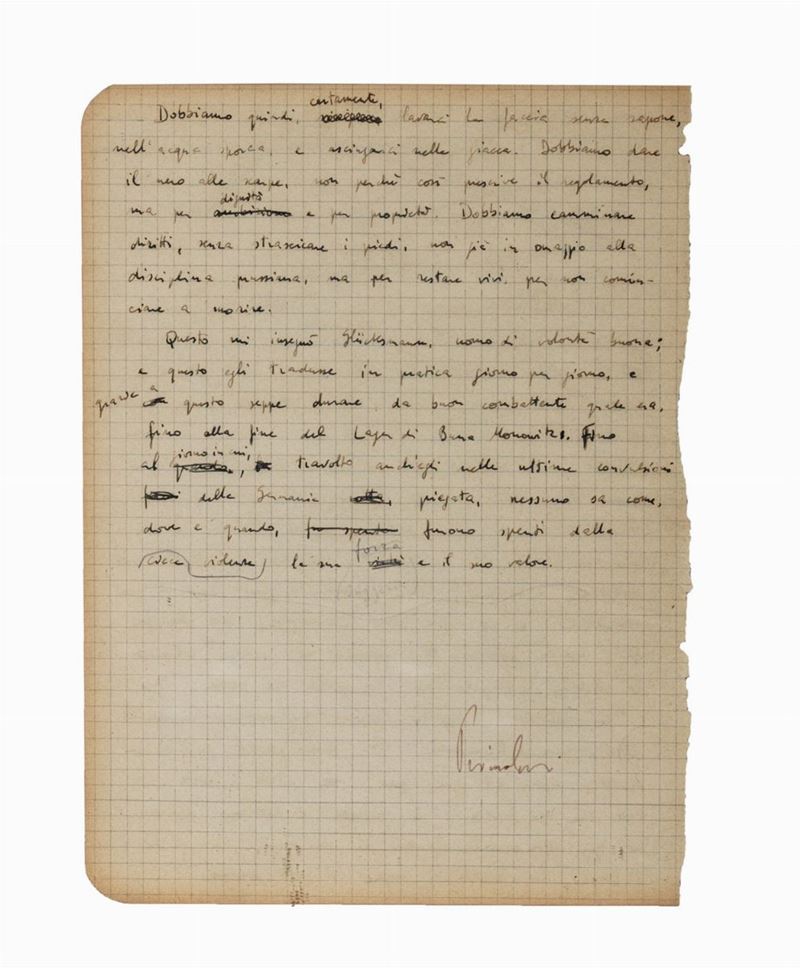 certamente,
Dobbiamo quindi, lavarci la faccia senza sapone,
nell'acqua sporca, e asciugarci nella giacca. Dobbiamo dare
il nero alle scarpe, non perché così prescrive il regolamento,
dignità
ma per ambizione e per proprietà. Dobbiamo camminare
diritti, senza strascicare i piedi, non già in omaggio alla
disciplina prussiana, ma per restare vivi, per non comin-
ciare a morire.
Questo mi insegnò Glücksmann, uomo di volontà buona;
e questo egli tradusse in pratica giorno per giorno, e
a
questo seppe durare, da buon combattente quale era,
fino alla fine del Lager di Buna Monowitz. Fino
giorno in cui,
al quando, travolto anch'egli nelle ultime convulsioni
della Germania piegata, nessuno sa come,
dove e quando, fu spento furono spenti dalla
forza
cieca violenza la sua e il suo valore.
Primo Levi